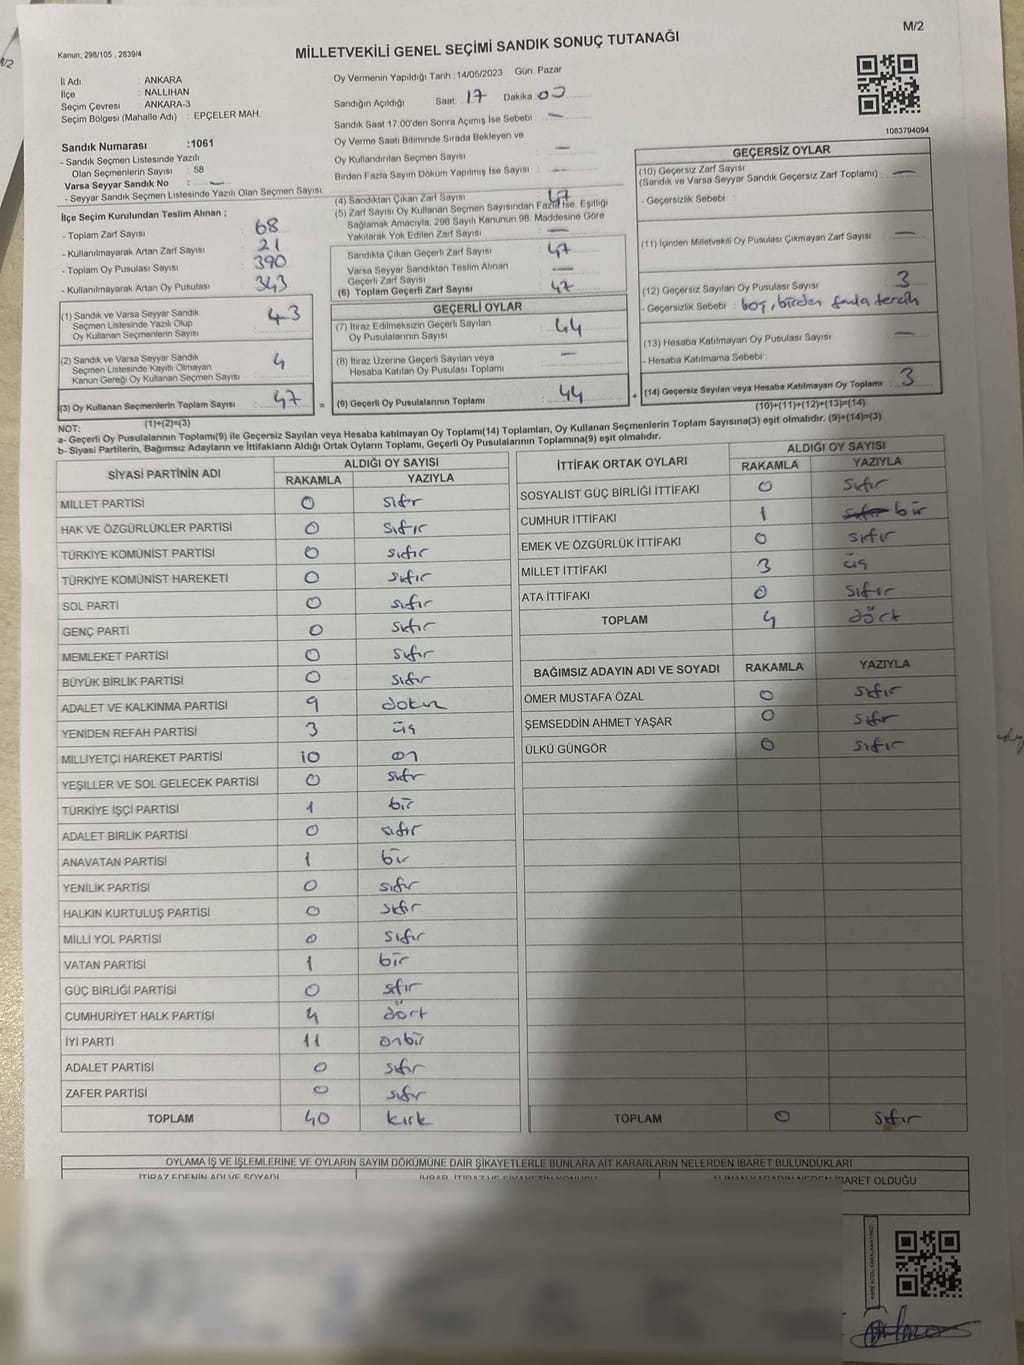 M/2
Kanun: 298/105 , 2839/4
MİLLETVEKİLİ GENEL SEÇİMİ SANDIK SONUÇ TUTANAĞI
İl Adı : ANKARA
İlçe : NALLIHAN
Seçim Çevresi : ANKARA-3
Seçim Bölgesi (Mahalle Adı) : EPÇELER MAH.
Oy Vermenin Yapıldığı Tarih :14/05/2023 Gün: Pazar
Sandığın Açıldığı Saat: 17 Dakika 00
Sandık Saat 17.00'den Sonra Açımış İse Sebebi : —
Oy Verme Saati Bitiminde Sırada Bekleyen ve
Oy Kullandırılan Seçmen Sayısı : —
Birden Fazla Sayım Döküm Yapılmış İse Sayısı : —
1083794094
Sandık Numarası :1061
- Sandık Seçmen Listesinde Yazılı
Olan Seçmenlerin Sayısı : 58
Varsa Seyyar Sandık No : —
- Seyyar Sandık Seçmen Listesinde Yazılı Olan Seçmen Sayısı:
İlçe Seçim Kurulundan Teslim Alınan ;
- Toplam Zarf Sayısı : 68
- Kullanılmayarak Artan Zarf Sayısı : 21
- Toplam Oy Pusulası Sayısı : 390
- Kullanılmayarak Artan Oy Pusulası : 343
(1) Sandık ve Varsa Seyyar Sandık
Seçmen Listesinde Yazılı Olup
Oy Kullanan Seçmenlerin Sayısı : 43
(2) Sandık ve Varsa Seyyar Sandık
Seçmen Listesinde Kayıtlı Olmayan
Kanun Gereği Oy Kullanan Seçmen Sayısı : 4
(3) Oy Kullanan Seçmenlerin Toplam Sayısı : 47 =
(1)+(2)=(3)
(4) Sandıktan Çıkan Zarf Sayısı : 47
(5) Zarf Sayısı Oy Kullanan Seçmen Sayısından Fazla İse, Eşitliği
Sağlamak Amacıyla; 298 Sayılı Kanunun 98. Maddesine Göre
Yakılarak Yok Edilen Zarf Sayısı : —
Sandıkta Çıkan Geçerli Zarf Sayısı : 47
Varsa Seyyar Sandıktan Teslim Alınan
Geçerli Zarf Sayısı : —
(6) Toplam Geçerli Zarf Sayısı : 47
GEÇERLİ OYLAR
(7) İtiraz Edilmeksizin Geçerli Sayılan
Oy Pusulasının Sayısı : 44
(8) İtiraz Üzerine Geçerli Sayılan veya
Hesaba Katılan Oy Pusulası Toplamı : —
(9) Geçerli Oy Pusulalarının Toplamı : 44 +
GEÇERSİZ OYLAR
(10) Geçersiz Zarf Sayısı
(Sandık ve Varsa Seyyar Sandık Geçersiz Zarf Toplamı) : —
- Geçersizlik Sebebi :
(11) İçinden Milletvekili Oy Pusulası Çıkmayan Zarf Sayısı : —
(12) Geçersiz Sayılan Oy Pusulası Sayısı : 3
- Geçersizlik Sebebi : boş, birden fazla tercih
(13) Hesaba Katılmayan Oy Pusulası Sayısı : —
- Hesaba Katılmama Sebebi :
(14) Geçersiz Sayılan veya Hesaba Katılmayan Oy Toplamı : 3
(10)+(11)+(12)+(13)=(14)
NOT:
a- Geçerli Oy Pusulalarının Toplamı(9) ile Geçersiz Sayılan veya Hesap katılmayan Oy Toplamı(14) Toplamları, Oy Kullanan Seçmenlerin Toplam Sayısına(3) eşit olmalıdır. (9)+(14)=(3)
b- Siyasi Partilerin, Bağımsız Adayların ve İttifakların Aldığı Ortak Oyların Toplamı, Geçerli Oy Pusulalarının Toplamına(9) eşit olmalıdır.
SİYASİ PARTİNİN ADI ALDIĞI OY SAYISI
RAKAMLA YAZIYLA
MİLLET PARTİSİ 0 sıfır
HAK VE ÖZGÜRLÜKLER PARTİSİ 0 sıfır
TÜRKİYE KOMÜNİST PARTİSİ 0 sıfır
TÜRKİYE KOMÜNİST HAREKETİ 0 sıfır
SOL PARTİ 0 sıfır
GENÇ PARTİ 0 sıfır
MEMLEKET PARTİSİ 0 sıfır
BÜYÜK BİRLİK PARTİSİ 0 sıfır
ADALET VE KALKINMA PARTİSİ 9 dokuz
YENİDEN REFAH PARTİSİ 3 üç
MİLLİYETÇİ HAREKET PARTİSİ 10 on
YEŞİLLER VE SOL GELECEK PARTİSİ 0 sıfır
TÜRKİYE İŞÇİ PARTİSİ 1 bir
ADALET BİRLİK PARTİSİ 0 sıfır
ANAVATAN PARTİSİ 1 bir
YENİLİK PARTİSİ 0 sıfır
HALKIN KURTULUŞ PARTİSİ 0 sıfır
MİLLİ YOL PARTİSİ 0 sıfır
VATAN PARTİSİ 1 bir
GÜÇ BİRLİĞİ PARTİSİ 0 sıfır
CUMHURİYET HALK PARTİSİ 4 dört
İYİ PARTİ 11 onbir
ADALET PARTİSİ 0 sıfır
ZAFER PARTİSİ 0 sıfır
TOPLAM 40 kırk
İTTİFAK ORTAK OYLARI ALDIĞI OY SAYISI
RAKAMLA YAZIYLA
SOSYALİST GÜÇ BİRLİĞİ İTTİFAKI 0 sıfır
CUMHUR İTTİFAKI 1 sıfır bir
EMEK VE ÖZGÜRLÜK İTTİFAKI 0 sıfır
MİLLET İTTİFAKI 3 üç
ATA İTTİFAKI 0 sıfır
TOPLAM 4 dört
BAĞIMSIZ ADAYIN ADI VE SOYADI RAKAMLA YAZIYLA
ÖMER MUSTAFA ÖZAL 0 sıfır
ŞEMSEDDİN AHMET YAŞAR 0 sıfır
ÜLKÜ GÜNGÖR 0 sıfır
TOPLAM 0 sıfır
OYLAMA İŞ VE İŞLEMLERİNE VE OYLARIN SAYIM DÖKÜMÜNE DAİR ŞİKAYETLERLE BUNLARA AİT KARARLARIN NELERDEN İBARET BULUNDUKLARI
İTİRAZ EDENİN ADI VE SOYADI